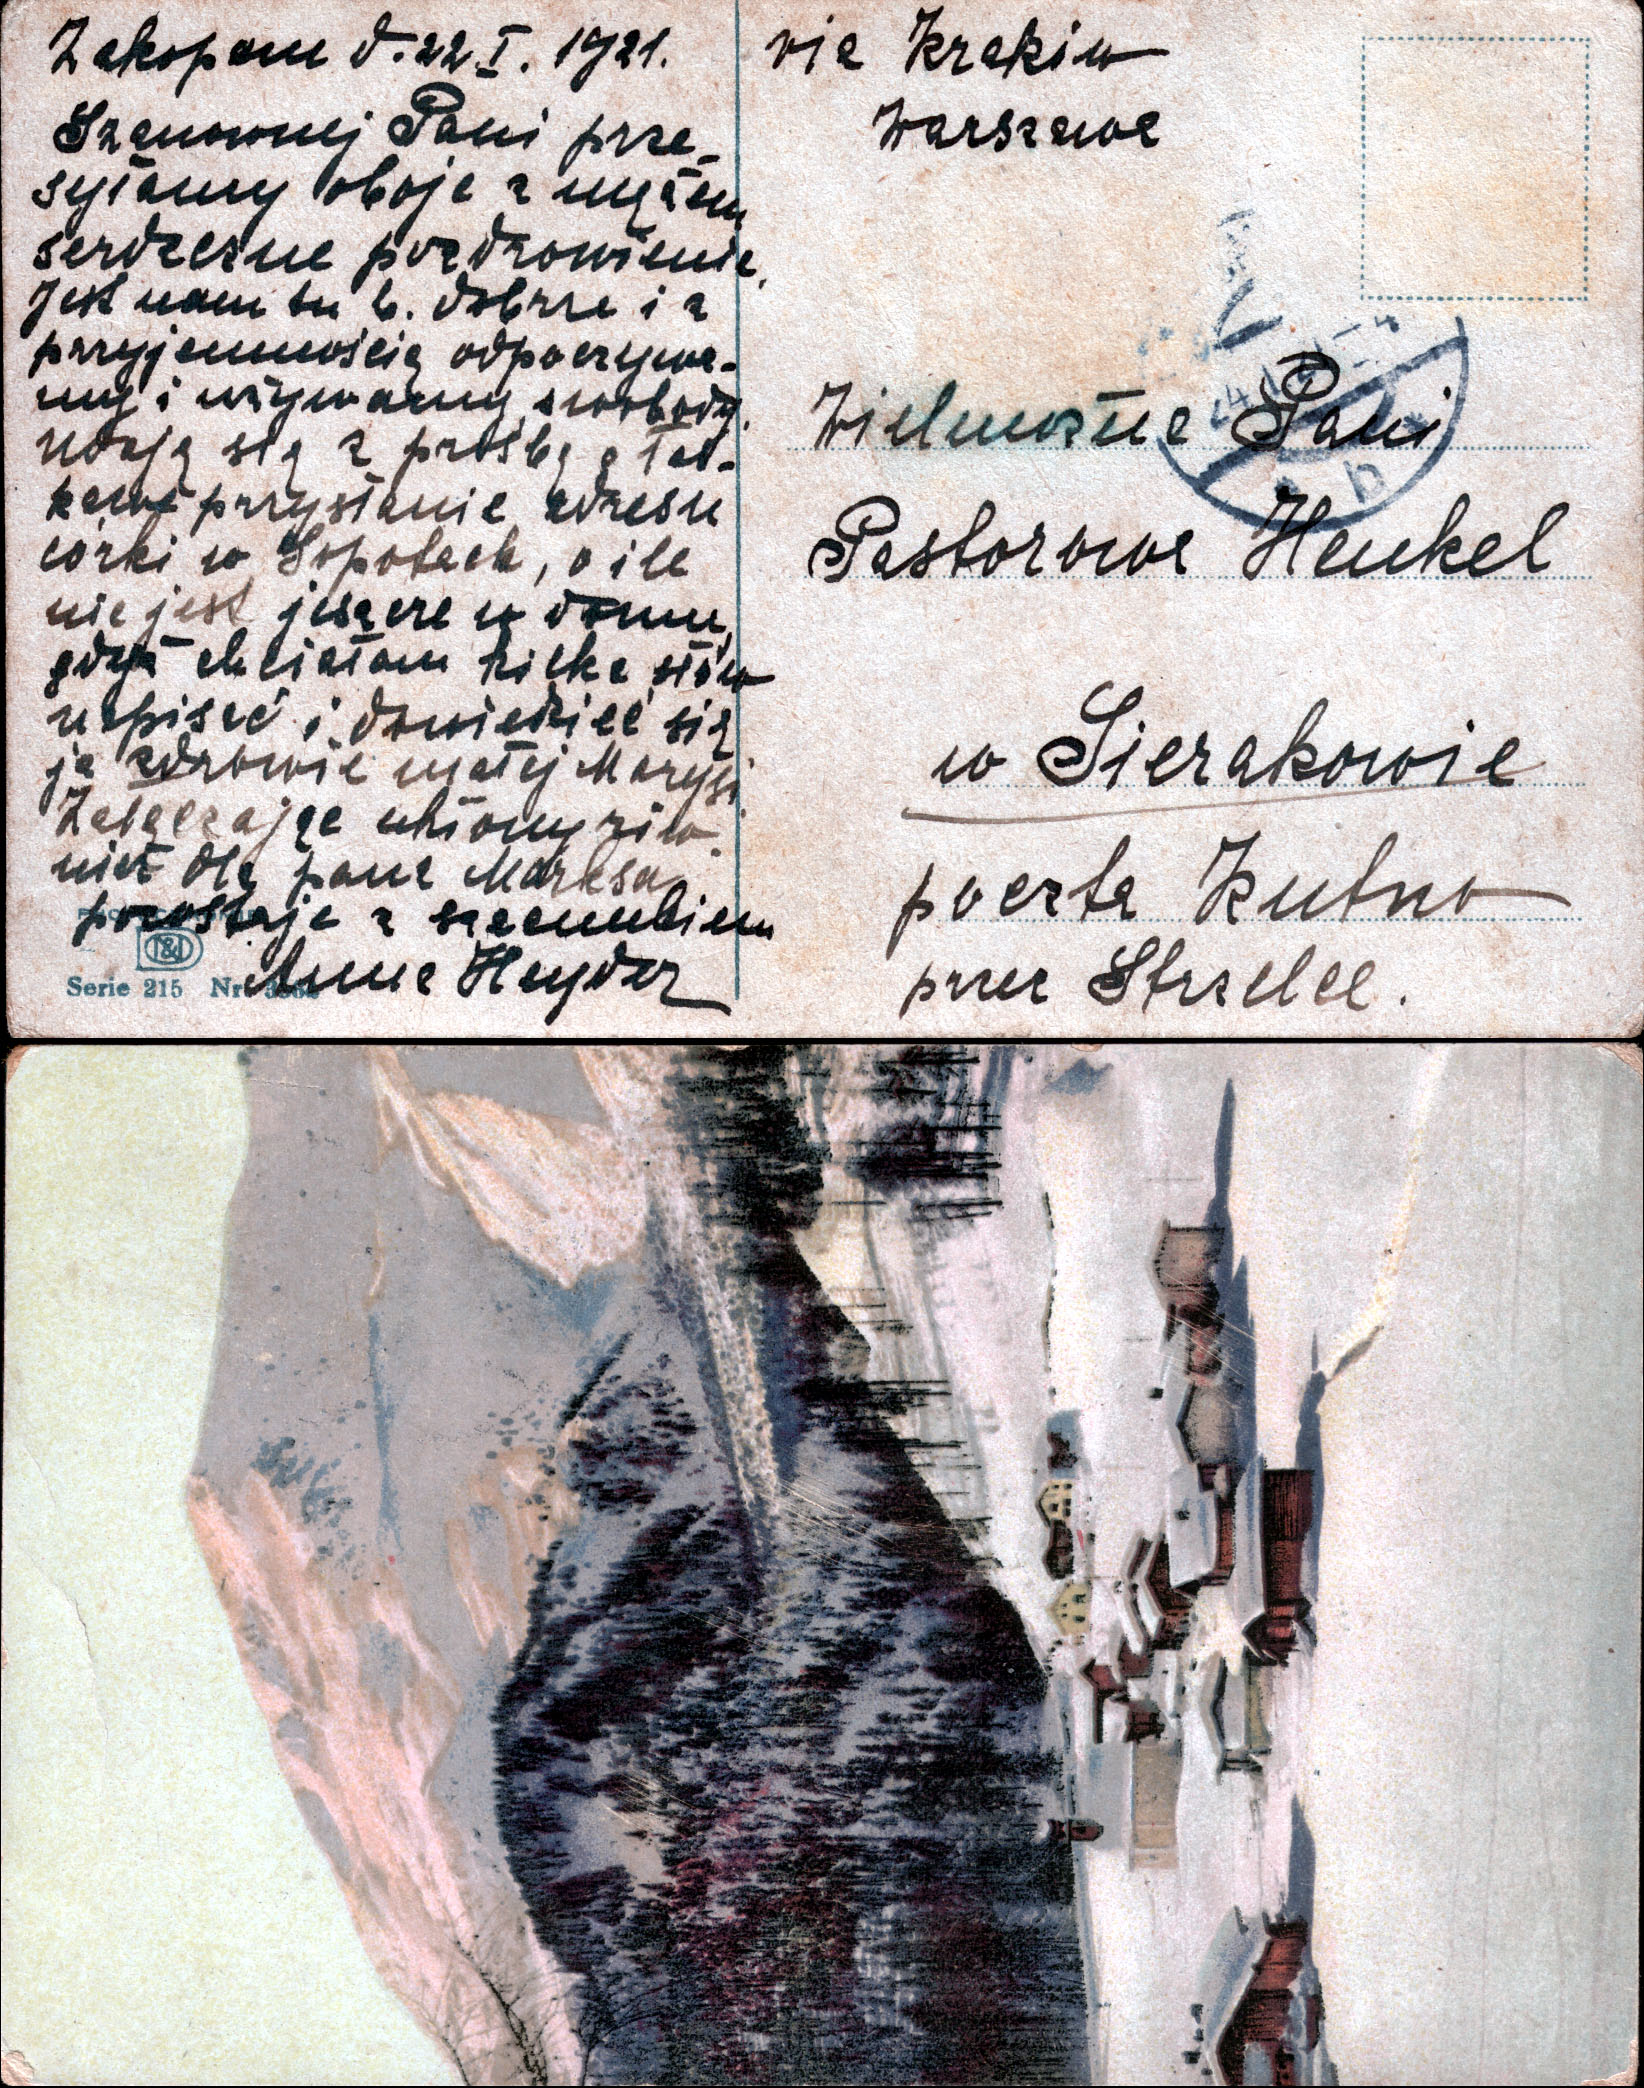 Zakopane d. 22.I. 1921.
Szanownej Pani prze-
syłamy oboje z mężem
serdeczne pozdrowienie.
Jest nam tu b. dobrze i z
przyjemnością odpoczywa-
my i używamy swobody.
Udaję się z prośbą o łas-
kawe przysłanie adresu
córki w Sopotach, o ile
nie jest jeszcze w domu,
gdyż chciałam kilka słów
napisać i dowiedzieć się
o zdrowie małej Marysi.
Załączając ukłony rów-
nież dla pana
pozostaję z szacunkiem
Anna Heyder
Serie 215 Nr.
via Kraków
Warszawa
Wielmożna Pani
Pastorowa Henkel
w Sierakowie
poczta Kutno
przez Strzelce.